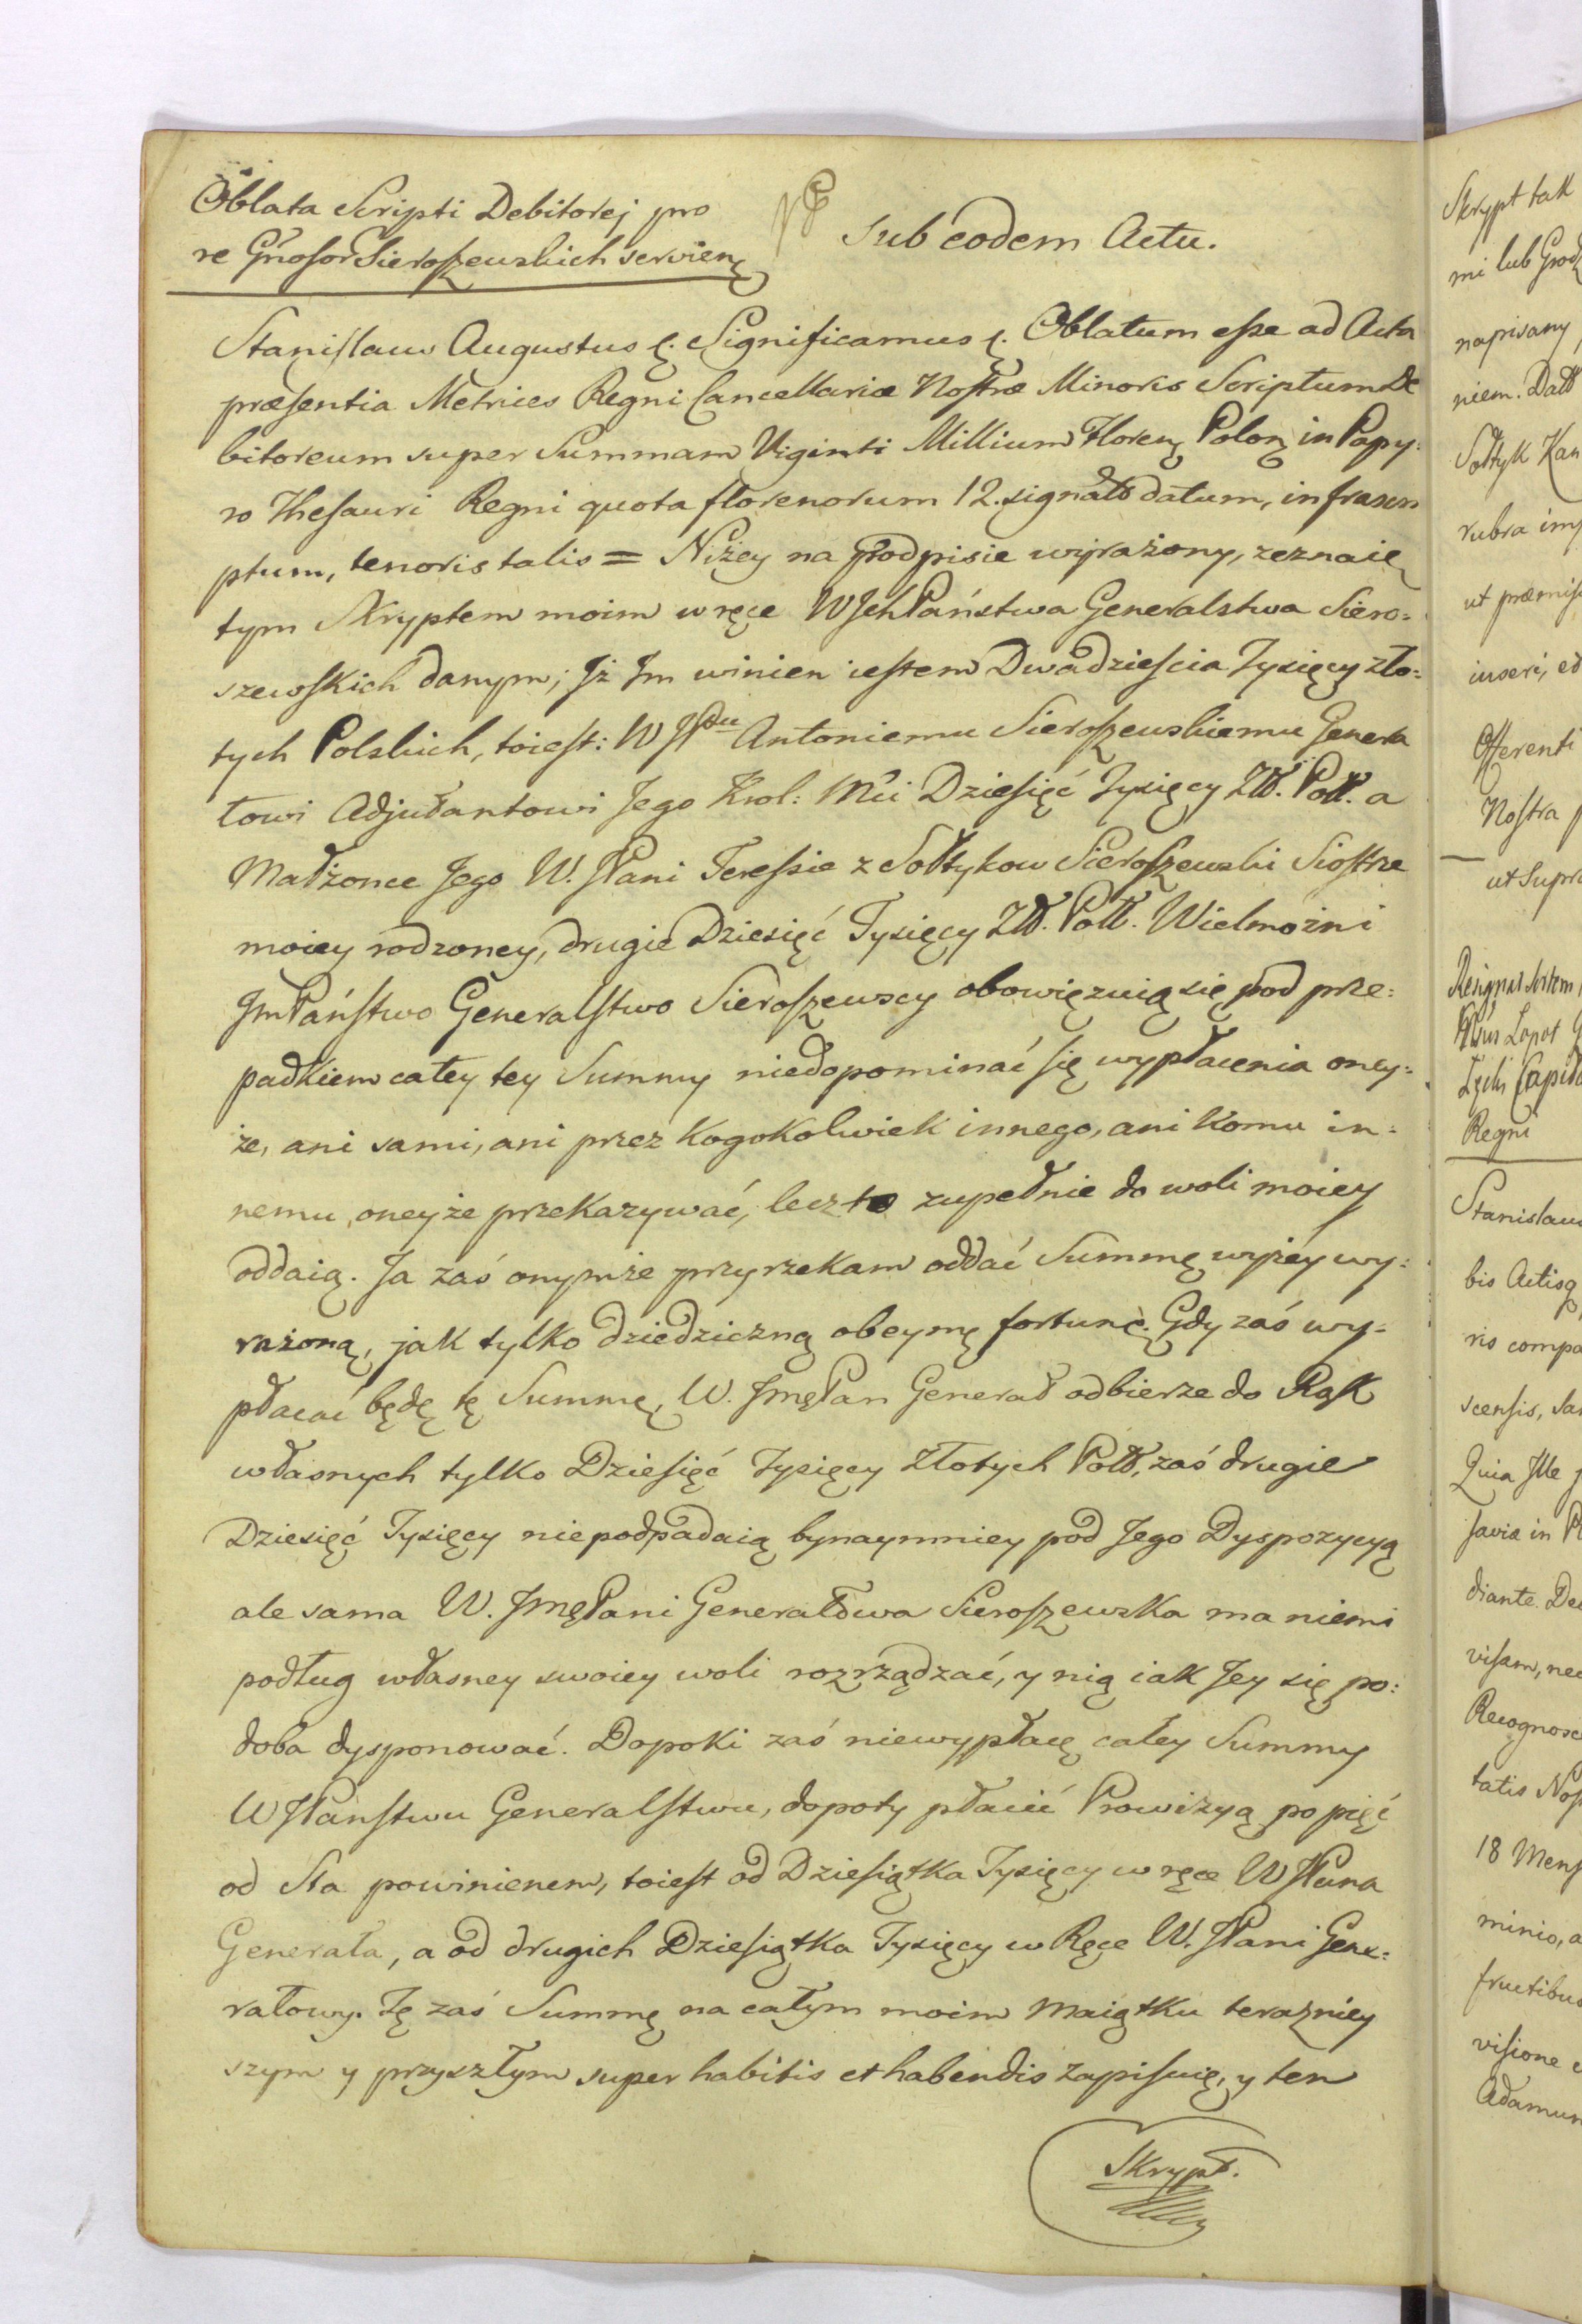 Oblata Scripti Debitorej pro
re Gnosor Sieroszewskich servien
Sub eodem Actu.
Stanislaus Augustus &. Significamus &. Oblatum esse ad Acta
præsentia Metrices Regni Cancellariæ Nostræ Minoris Scriptum De
bitoreum super Summam Viginti Millium Floren Polon in Papy:
ro Thesauri Regni quota florenorum 12. signato datum, infrascri
ptum, tenoris talis = Niżey na Podpisie wyrażony, zeznaię
tym Skryptem moim w ręce WJchPaństwa Generalstwa Siero:
szewskich danym; Jż Jm winien iestem Dwadzieścia Tysięcy zło:
tych Polskich, toiest: WJPanu Antoniemu Sieroszewskiemu Genera
łowi Adjutantowi Jego Krol: Mci Dziesięć Tysięcy Zł. Poll. a
Małżonce Jego W. JPani Teressie z Sołtykow Sieroszewski Siostrze
moiey rodzoney, drugie Dziesięć Tysięcy Zł. Poll. Wielmożni
JmPaństwo Generalstwo Sieroszewscy obowięzuią się pod prze:
padkiem całey tey Summy niedopominać się wypłacenia oney:
że, ani sami, ani przez Kogokolwiek innego, ani Komu in:
nemu oneyże przekazywać, lecz to zupełnie do woli moiey
oddaią. Ja zaś onymże przyrzekam oddać Summę wyżey wy:
rażoną, jak tylko dziedziczną obeymę fortunę. Gdy zaś wy:
płacać będę tę Summę, W. JmęPan Generał odbierze do Rąk
własnych tylko Dziesięć Tysięcy Złotych Poll, zaś drugie
Dziesięć Tysięcy niepodpadaią bynaymniey pod Jego Dyspozycyą
ale sama W. JmęPani Generałowa Sieroszewska ma niemi
podług własney swoiey woli rozrządzać, y nią iak Jey się po:
doba dysponować. Dopoki zaś niewypłacę całey Summy
WJPaństwu Generalstwu, dopoty płacić Prowizyą po pięć
od Sta powinienem, toiest od Dziesiątka Tysięcy w ręce WJPana
Generała, a od drugich Dziesiątka Tysięcy w Ręce W. JPani Gene:
rałowy. Tę zaś Summę na całym moim Maiątku teraźniey
szym y przyszłym super habitis et habendis zapisuię, y ten
Skrypt.
Skrypt tak
mi lub Grodz
napisany
niem. Datt
Sołtyk Kan
rubra imp
ut præmiss
inseri, et
Offerenti
Nostra
ut Supra
Regni
Stanislaus
bis Actisq
ris compa
scensis,
Quia Ille
in
diante. De
visam, nec
Recognosc
tatis Nos
18 Mens
minio, a
fructibus
visione
Adamum